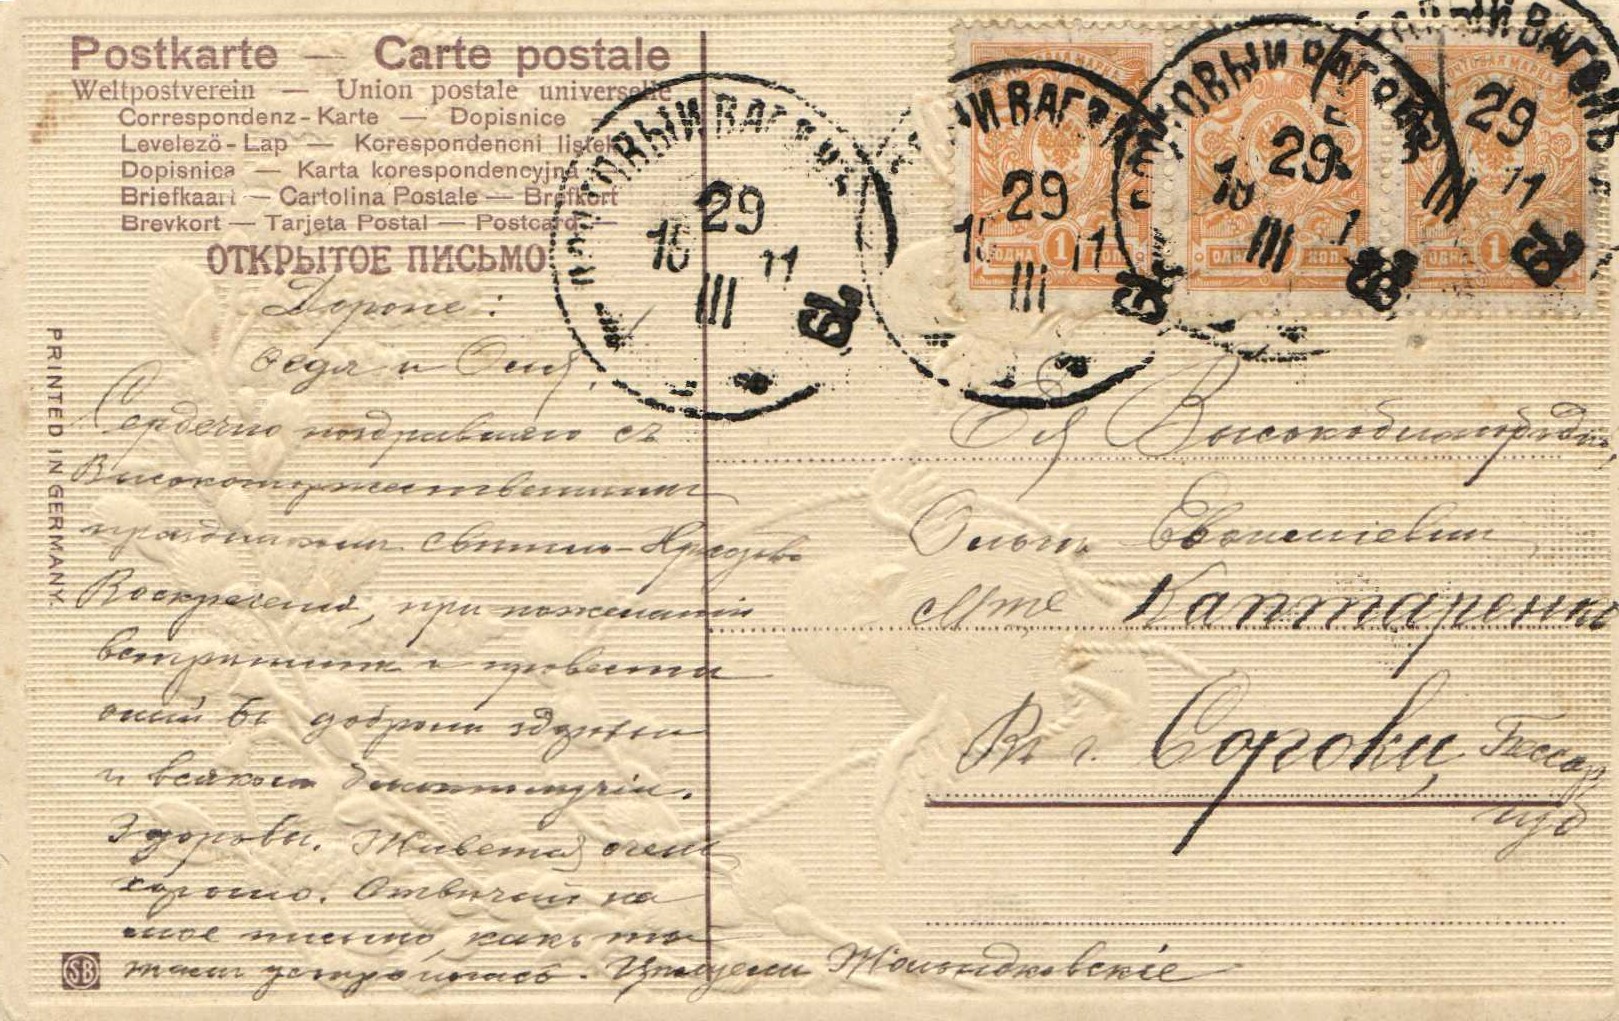 Postkarte — Carte postale
Weltpostverein — Union postale universelle
Correspondenz-Karte — Dopisnice
Levelező-Lap — Korespondencni listek
Dopisnica — Karta korespondencyjna
Briefkaart — Cartolina Postale — Brefkort
Brevkort — Tarjeta Postal — Postcard —
ОТКРЫТОЕ ПИСЬМО
PRINTED IN GERMANY.
ПОЧТОВЫЙ ВАГОНЪ
29
15 11
III
29
11
III
29
III
29
11
III
ОДНА 1 КОП.
ОДНА КОП.
1
Дорогие:
Федя и Оля,
Сердечно поздравляю съ
Высокоторжественными
праздниками Христова
Воскресенія, при пожеланіи
встретить и провести
оный въ добромъ здоровьи
и всякомъ благополучіи.
Здоровы. Живется очень
хорошо. Отвечай на
мое письмо, какъ ты
тамъ устроилась. Целуемъ
Ея Высокоблагородію
Ольге
Каптаренко
Въ г. Сороки Бессар
губ
SB